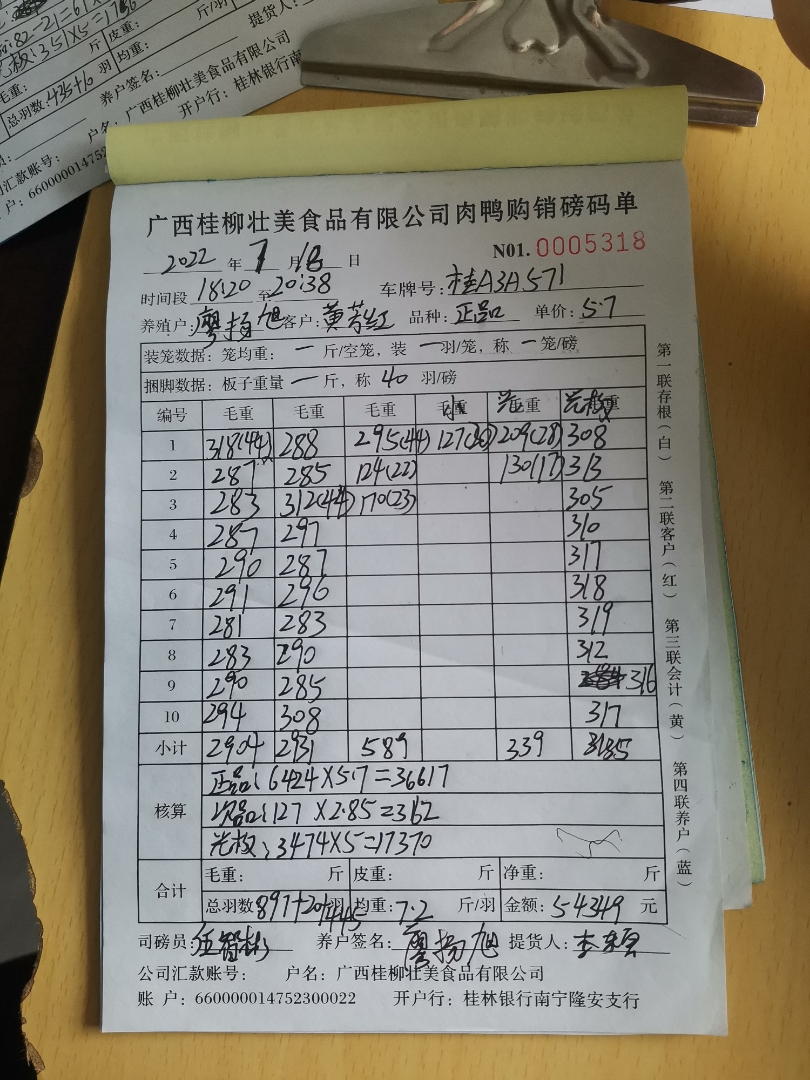 广西桂柳壮美食品有限公司肉鸭购销磅码单
N01. 0005318
2022 年 7 月 18 日
时间段 18:20 至 20:38 车牌号: 桂A3A571
养殖户: 廖扬旭 客户: 黄芳红 品种: 正品 单价: 5.7
装笼数据: 笼均重: 一 斤/空笼, 装 一 羽/笼, 称 一 笼/磅
捆脚数据: 板子重量 一 斤, 称 40 羽/磅
编号 毛重 毛重 毛重 小 光 重 光板 重
1 318(44) 288 295(44) 127(20) 209(28) 308
2 287 285 124(22) 130(17) 313
3 283 312(44) 170(23) 305
4 287 297 310
5 290 287 317
6 291 296 318
7 281 283 319
8 283 290 312
9 290 285 316
10 294 308 317
小计 2904 2931 589 339 3185
核算
正品: 6424×5.7=36617
次品: 127×2.85=362
光板: 3474×5=17370
合计
毛重: 斤 皮重: 斤 净重: 斤
总羽数 897+20+445 羽 均重: 7.2 斤/羽 金额: 54349 元
司磅员: 养户签名: 廖扬旭 提货人:
公司汇款账号: 户名: 广西桂柳壮美食品有限公司
账 户: 660000014752300022 开户行: 桂林银行南宁隆安支行
第一联存根(白) 第二联客户(红) 第三联会计(黄) 第四联养户(蓝)
斤 皮重:
斤/羽 提货人:
光板: 351×5=1756
毛重: 斤 均重:
总羽数: 435+10 羽 养户签名:
户名: 广西桂柳壮美食品有限公司
司汇款账号: 开户行: 桂林银行南
户: 660000014752